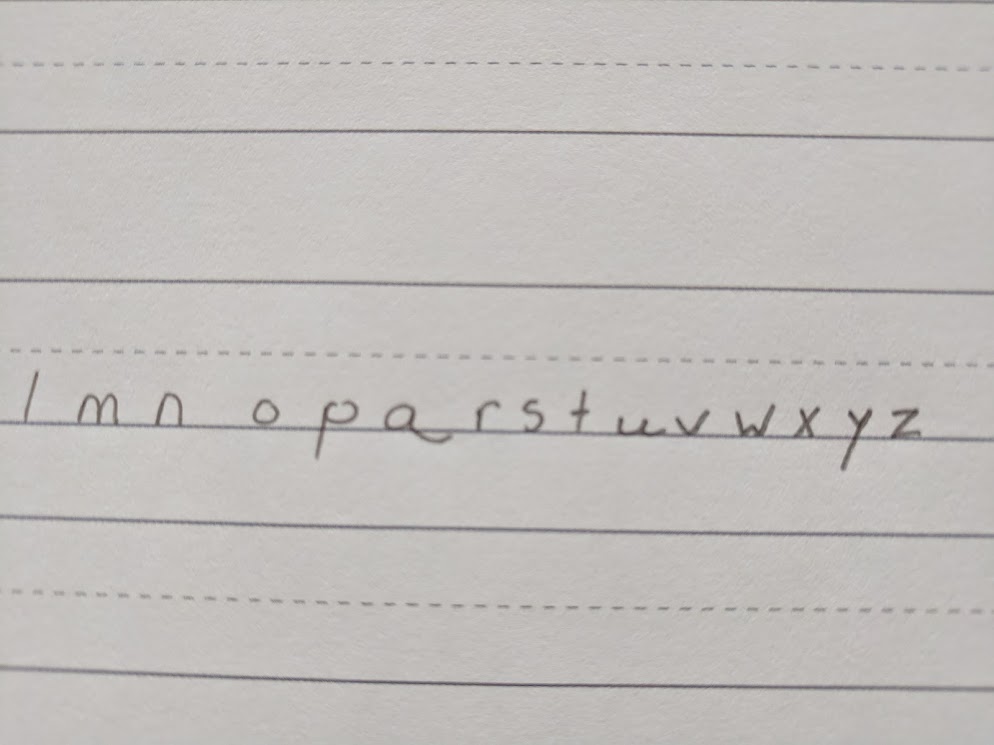 l m n o p q r s t u v w x y z